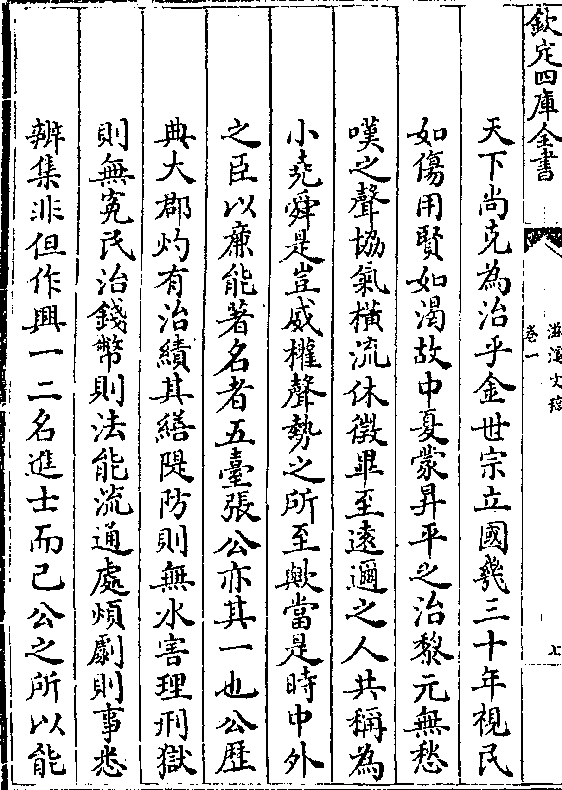 欽定四庫全書
滋溪文稿
卷一
上
天下尚克為治乎金世宗立國幾三十年視民
如傷用賢如渴故中夏蒙昇平之治黎元無愁
嘆之聲協氣橫流休徵畢至遠邇之人共稱為
小堯舜是豈威權聲勢之所至歟當是時中外
之臣以廉能著名者五臺張公亦其一也公歷
典大郡灼有治績其繕隄防則無水害理刑獄
則無寃民治錢幣則法能流通處煩劇則事悉
辦集非但作興一二名進士而已公之所以能